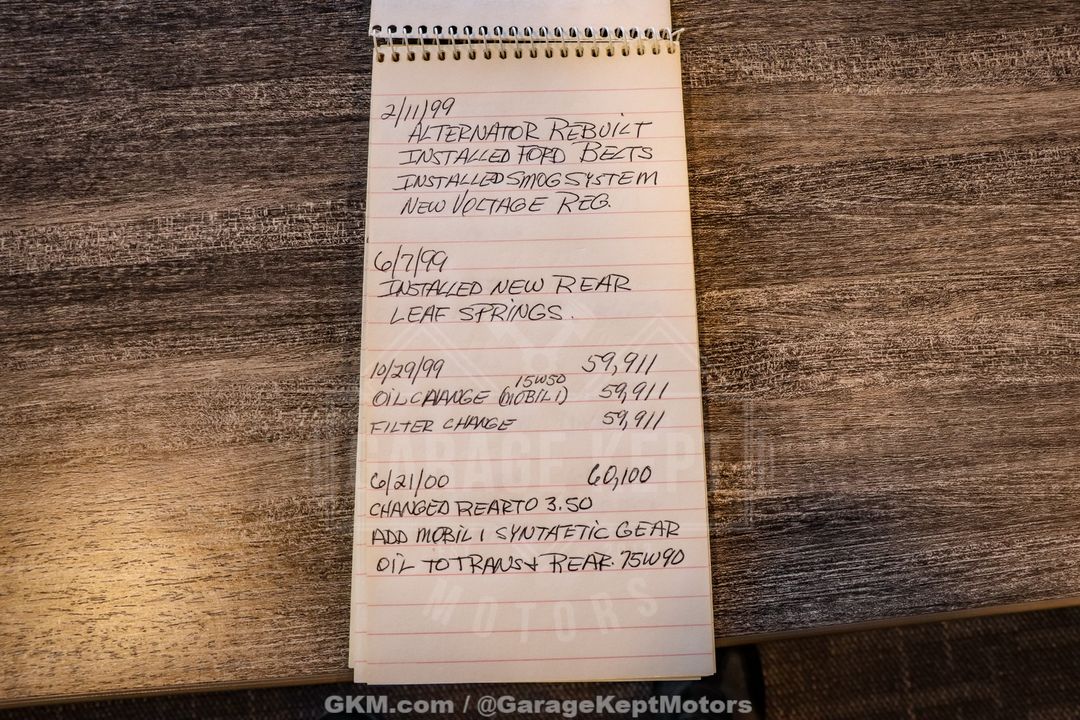 2/11/99
ALTERNATOR REBUILT
INSTALLED FORD BELTS
INSTALLED SMOG SYSTEM
NEW VOLTAGE REG.
6/7/99
INSTALLED NEW REAR
LEAF SPRINGS.
10/29/99 59,911
15W50
OIL CHANGE (MOBIL 1) 59,911
FILTER CHANGE 59,911
GARAGE KEPT
6/21/00 60,100
CHANGED REAR TO 3.50
ADD MOBIL 1 SYNTAETIC GEAR
OIL TO TRANS & REAR. 75W90
MOTORS
GKM.com / @GarageKeptMotors